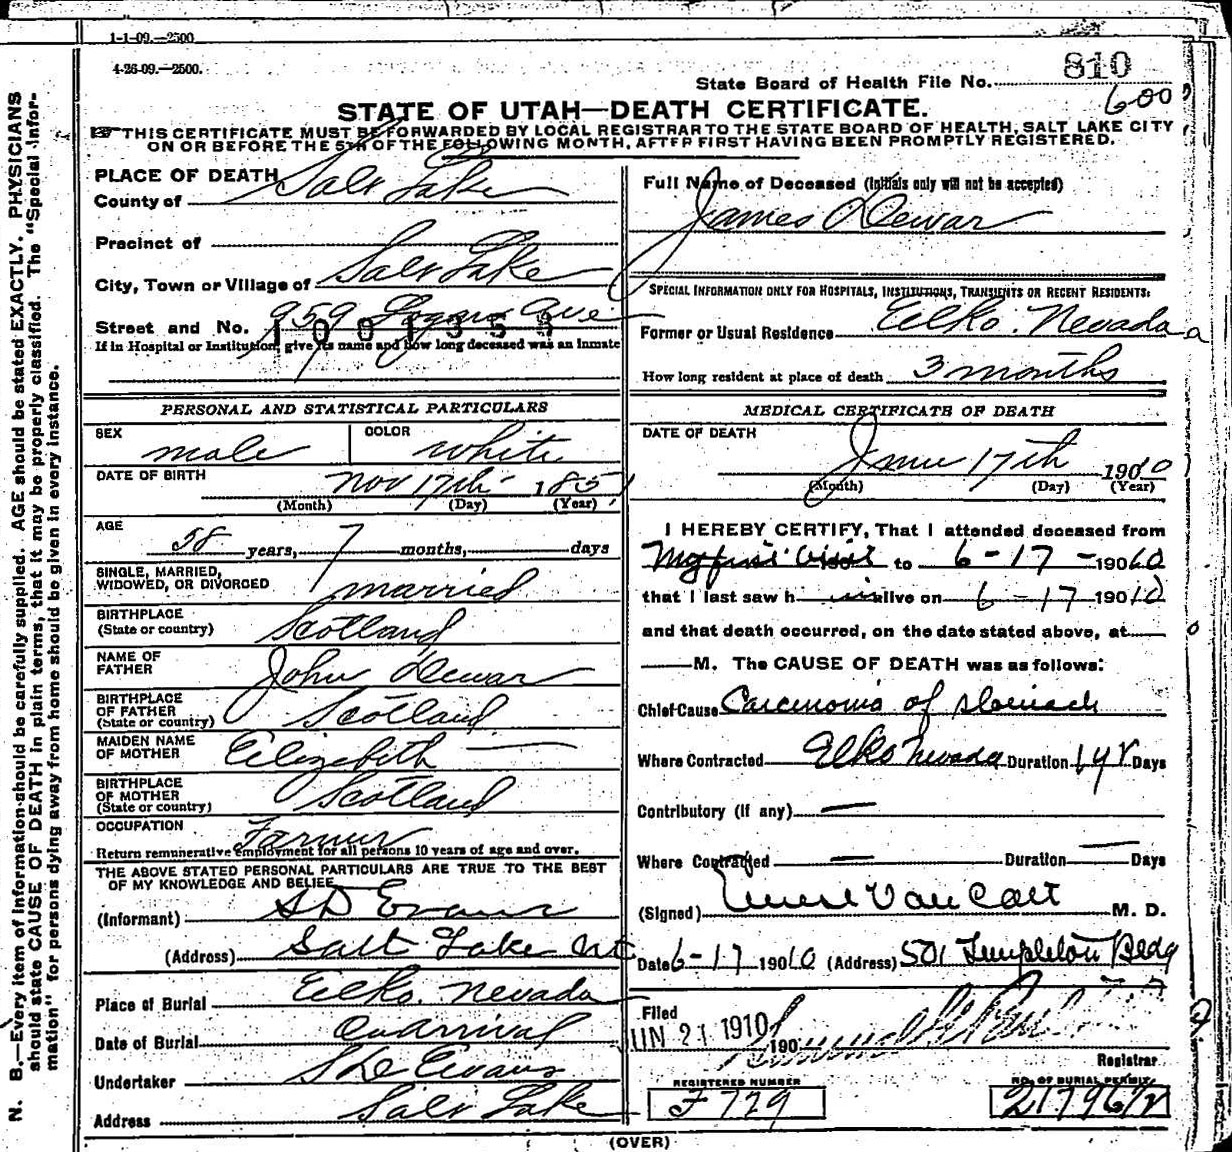 1-1-09.—2500
4-26-09.—2500.
State Board of Health File No. 810
600
STATE OF UTAH—DEATH CERTIFICATE.
THIS CERTIFICATE MUST BE FORWARDED BY LOCAL REGISTRAR TO THE STATE BOARD OF HEALTH, SALT LAKE CITY
ON OR BEFORE THE 5TH OF THE FOLLOWING MONTH, AFTER FIRST HAVING BEEN PROMPTLY REGISTERED.
PLACE OF DEATH
County of Salt Lake
Precinct of
City, Town or Village of Salt Lake
Street and No. 959 Logan Ave
1001353
If in Hospital or Institution, give its name and how long deceased was an Inmate
Full Name of Deceased (Initials only will not be accepted)
James Dewar
SPECIAL INFORMATION ONLY FOR HOSPITALS, INSTITUTIONS, TRANSIENTS OR RECENT RESIDENTS:
Former or Usual Residence Elko. Nevada
How long resident at place of death 3 months
PERSONAL AND STATISTICAL PARTICULARS
SEX male COLOR white
DATE OF BIRTH Nov 17th 1851
(Month) (Day) (Year)
AGE 58 years, 7 months, days
SINGLE, MARRIED,
WIDOWED, OR DIVORCED married
BIRTHPLACE
(State or country) Scotland
NAME OF
FATHER John Dewar
BIRTHPLACE
OF FATHER
(State or country) Scotland
MAIDEN NAME
OF MOTHER Elizabeth —
BIRTHPLACE
OF MOTHER
(State or country) Scotland
OCCUPATION Farmer
Return remunerative employment for all persons 10 years of age and over.
THE ABOVE STATED PERSONAL PARTICULARS ARE TRUE TO THE BEST
OF MY KNOWLEDGE AND BELIEF
(Informant) S D Evans
(Address) Salt Lake Ut
Place of Burial Elko. Nevada
Date of Burial On arrival
Undertaker S D Evans
Address Salt Lake
MEDICAL CERTIFICATE OF DEATH
DATE OF DEATH
June 17th 1910
(Month) (Day) (Year)
I HEREBY CERTIFY, That I attended deceased from
My first visit to 6-17-1910
that I last saw him alive on 6-17 1910
and that death occurred, on the date stated above, at
M. The CAUSE OF DEATH was as follows:
Chief Cause Carcinoma of stomach
Where Contracted Elko Nevada Duration 1 yr Days
Contributory (if any) —
Where Contracted — Duration — Days
(Signed) Van Cott M. D.
Date 6-17 1910 (Address) 501 Templeton Bldg
Filed
JUN 21 1910 190
Registrar
REGISTERED NUMBER
F 729
NO. OF BURIAL PERMIT
(OVER)
N. B.—Every item of information should be carefully supplied. AGE should be stated EXACTLY. PHYSICIANS
should state CAUSE OF DEATH in plain terms, that it may be properly classified. The "Special Infor-
mation" for persons dying away from home should be given in every instance.